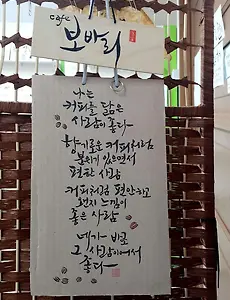 cafe
보바리
나는
커피를 닮은
사람이 좋다~
향기로운 커피처럼
분위기 있으면서
편한 사람
커피처럼 편안하고
왠지 느낌이
좋은 사람
네가 바로
그 사람이어서
좋다~